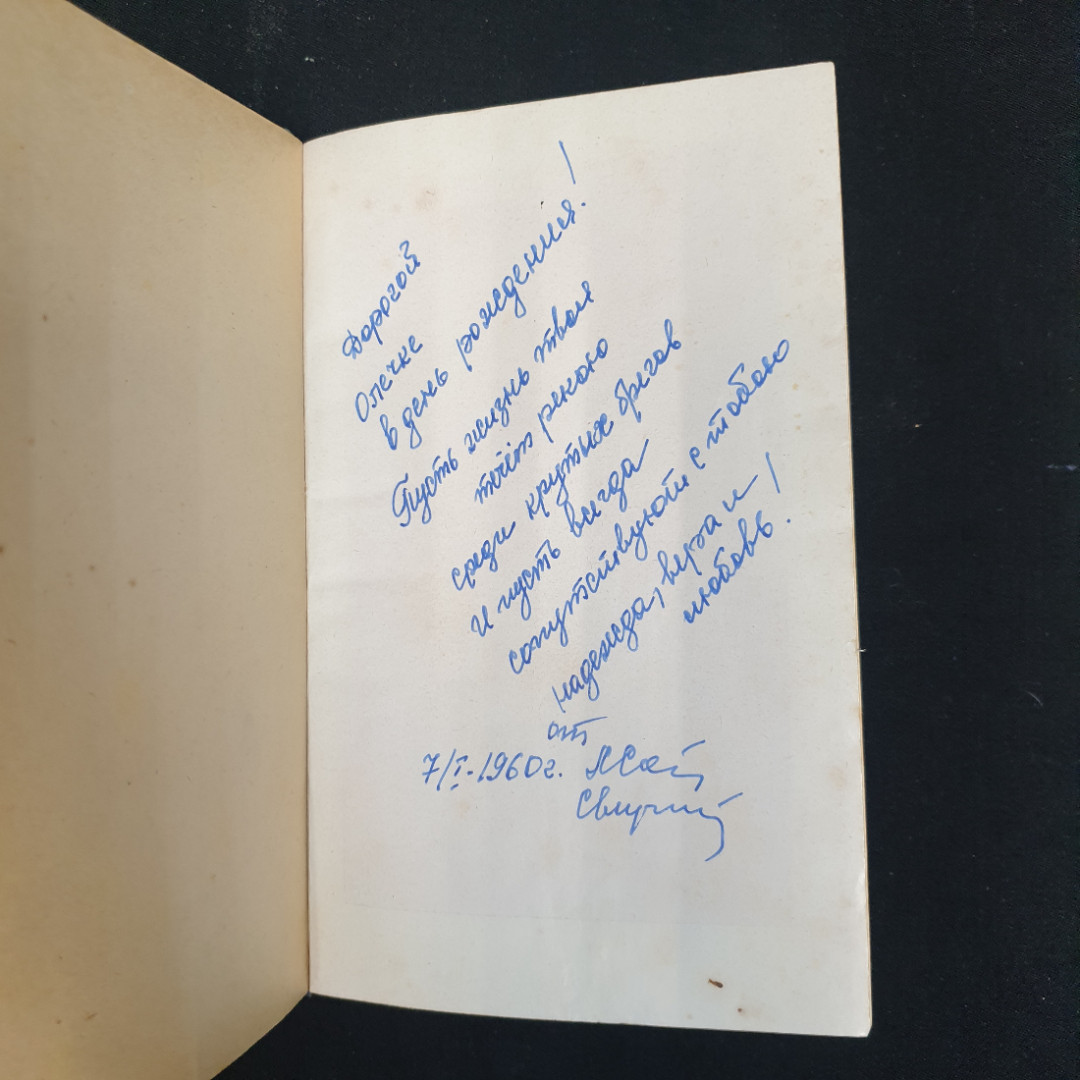 Дорогой
Олечке
в день рождения!
Пусть жизнь твоя
течёт рекою
среди крутых брегов
И пусть всегда
сопутствуют с тобою
надежда, вера и
любовь!
от
7/I-1960г.